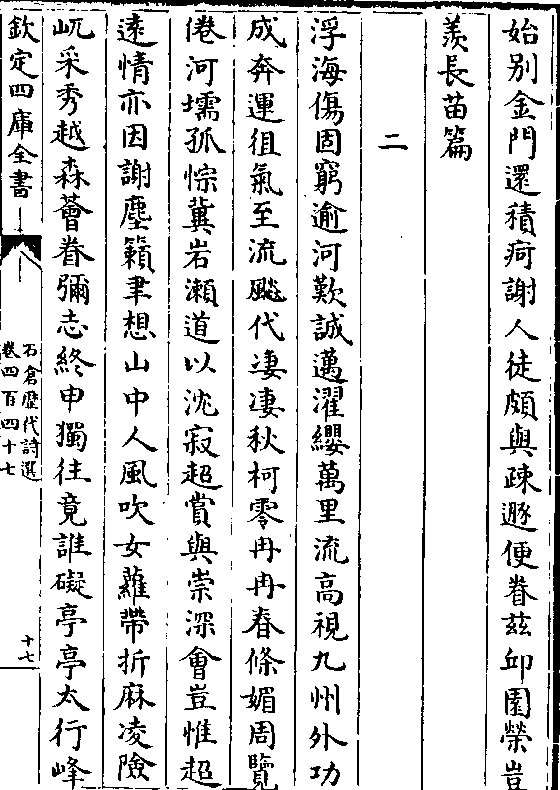 始别金門還積疴謝人徒頗與疎遯便眷兹邱園榮豈
羨長苗篇
二
浮海傷固窮逾河歎誠邁濯纓萬里流高視九州外功
成奔運徂氣至流飈代淒淒秋柯零冉冉春條媚周覽
倦河壖孤悰冀岩瀬道以沈寂超賞與崇深會豈惟超
逺情亦因謝塵籟聿想山中人風吹女蘿帶折麻凌險
屼采秀越森薈眷彌志終申獨往竟誰礙亭亭太行峰
欽定四庫全書
石倉歴代詩選
卷四百四十七
十七